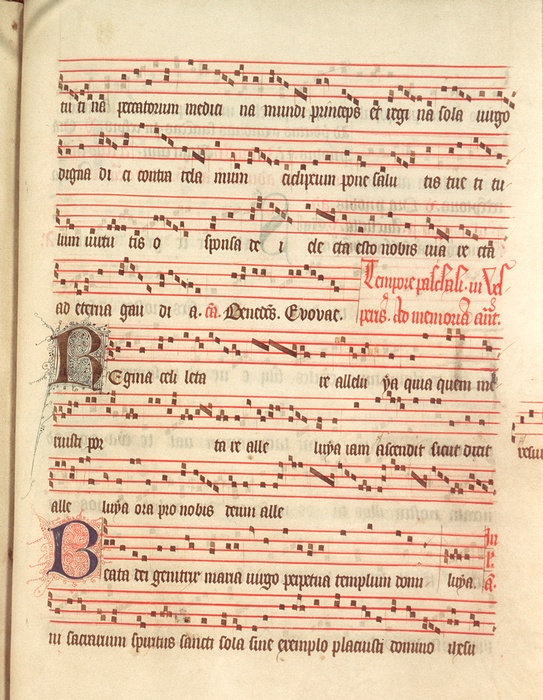 tu ti na peccatorum medici na mundi princeps et regi na sola uirgo
digna di ci contra tela inim ici clipeum pone salu tis tue ti tu
lum uirtu tis o sponsa de i ele cta esto nobis uia re cta
ad eterna gau di a. ca. Benedcs. Evovae.
Tempore paschali in ves
pers. ad memoria ant.
Regina celi leta re alleluya quia quem me
ruisti por ta re alle luya iam ascendit sicut dixit
resur
alle luya ora pro nobis deum alle
Beata dei genitrix maria uirgo perpetua templum domi luya.
ni sacrarium spiritus sancti sola sine exemplo placuisti domino